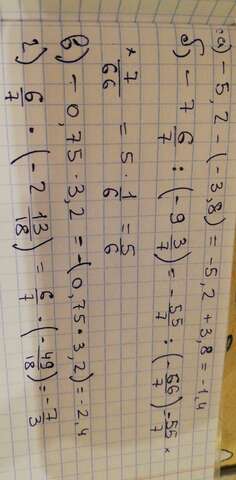 а) -5,2-(-3,8)=-5,2+3,8=-1,4
б) -7 6/7 : (-9 3/7) = -55/7 : (-66/7) -55/7 ×
× 7/66 = 5·1/6 = 5/6
в) -0,75·3,2 = -(0,75·3,2) = -2,4
г) 6/7 · (-2 13/18) = 6/7 · (-49/18) = -7/3